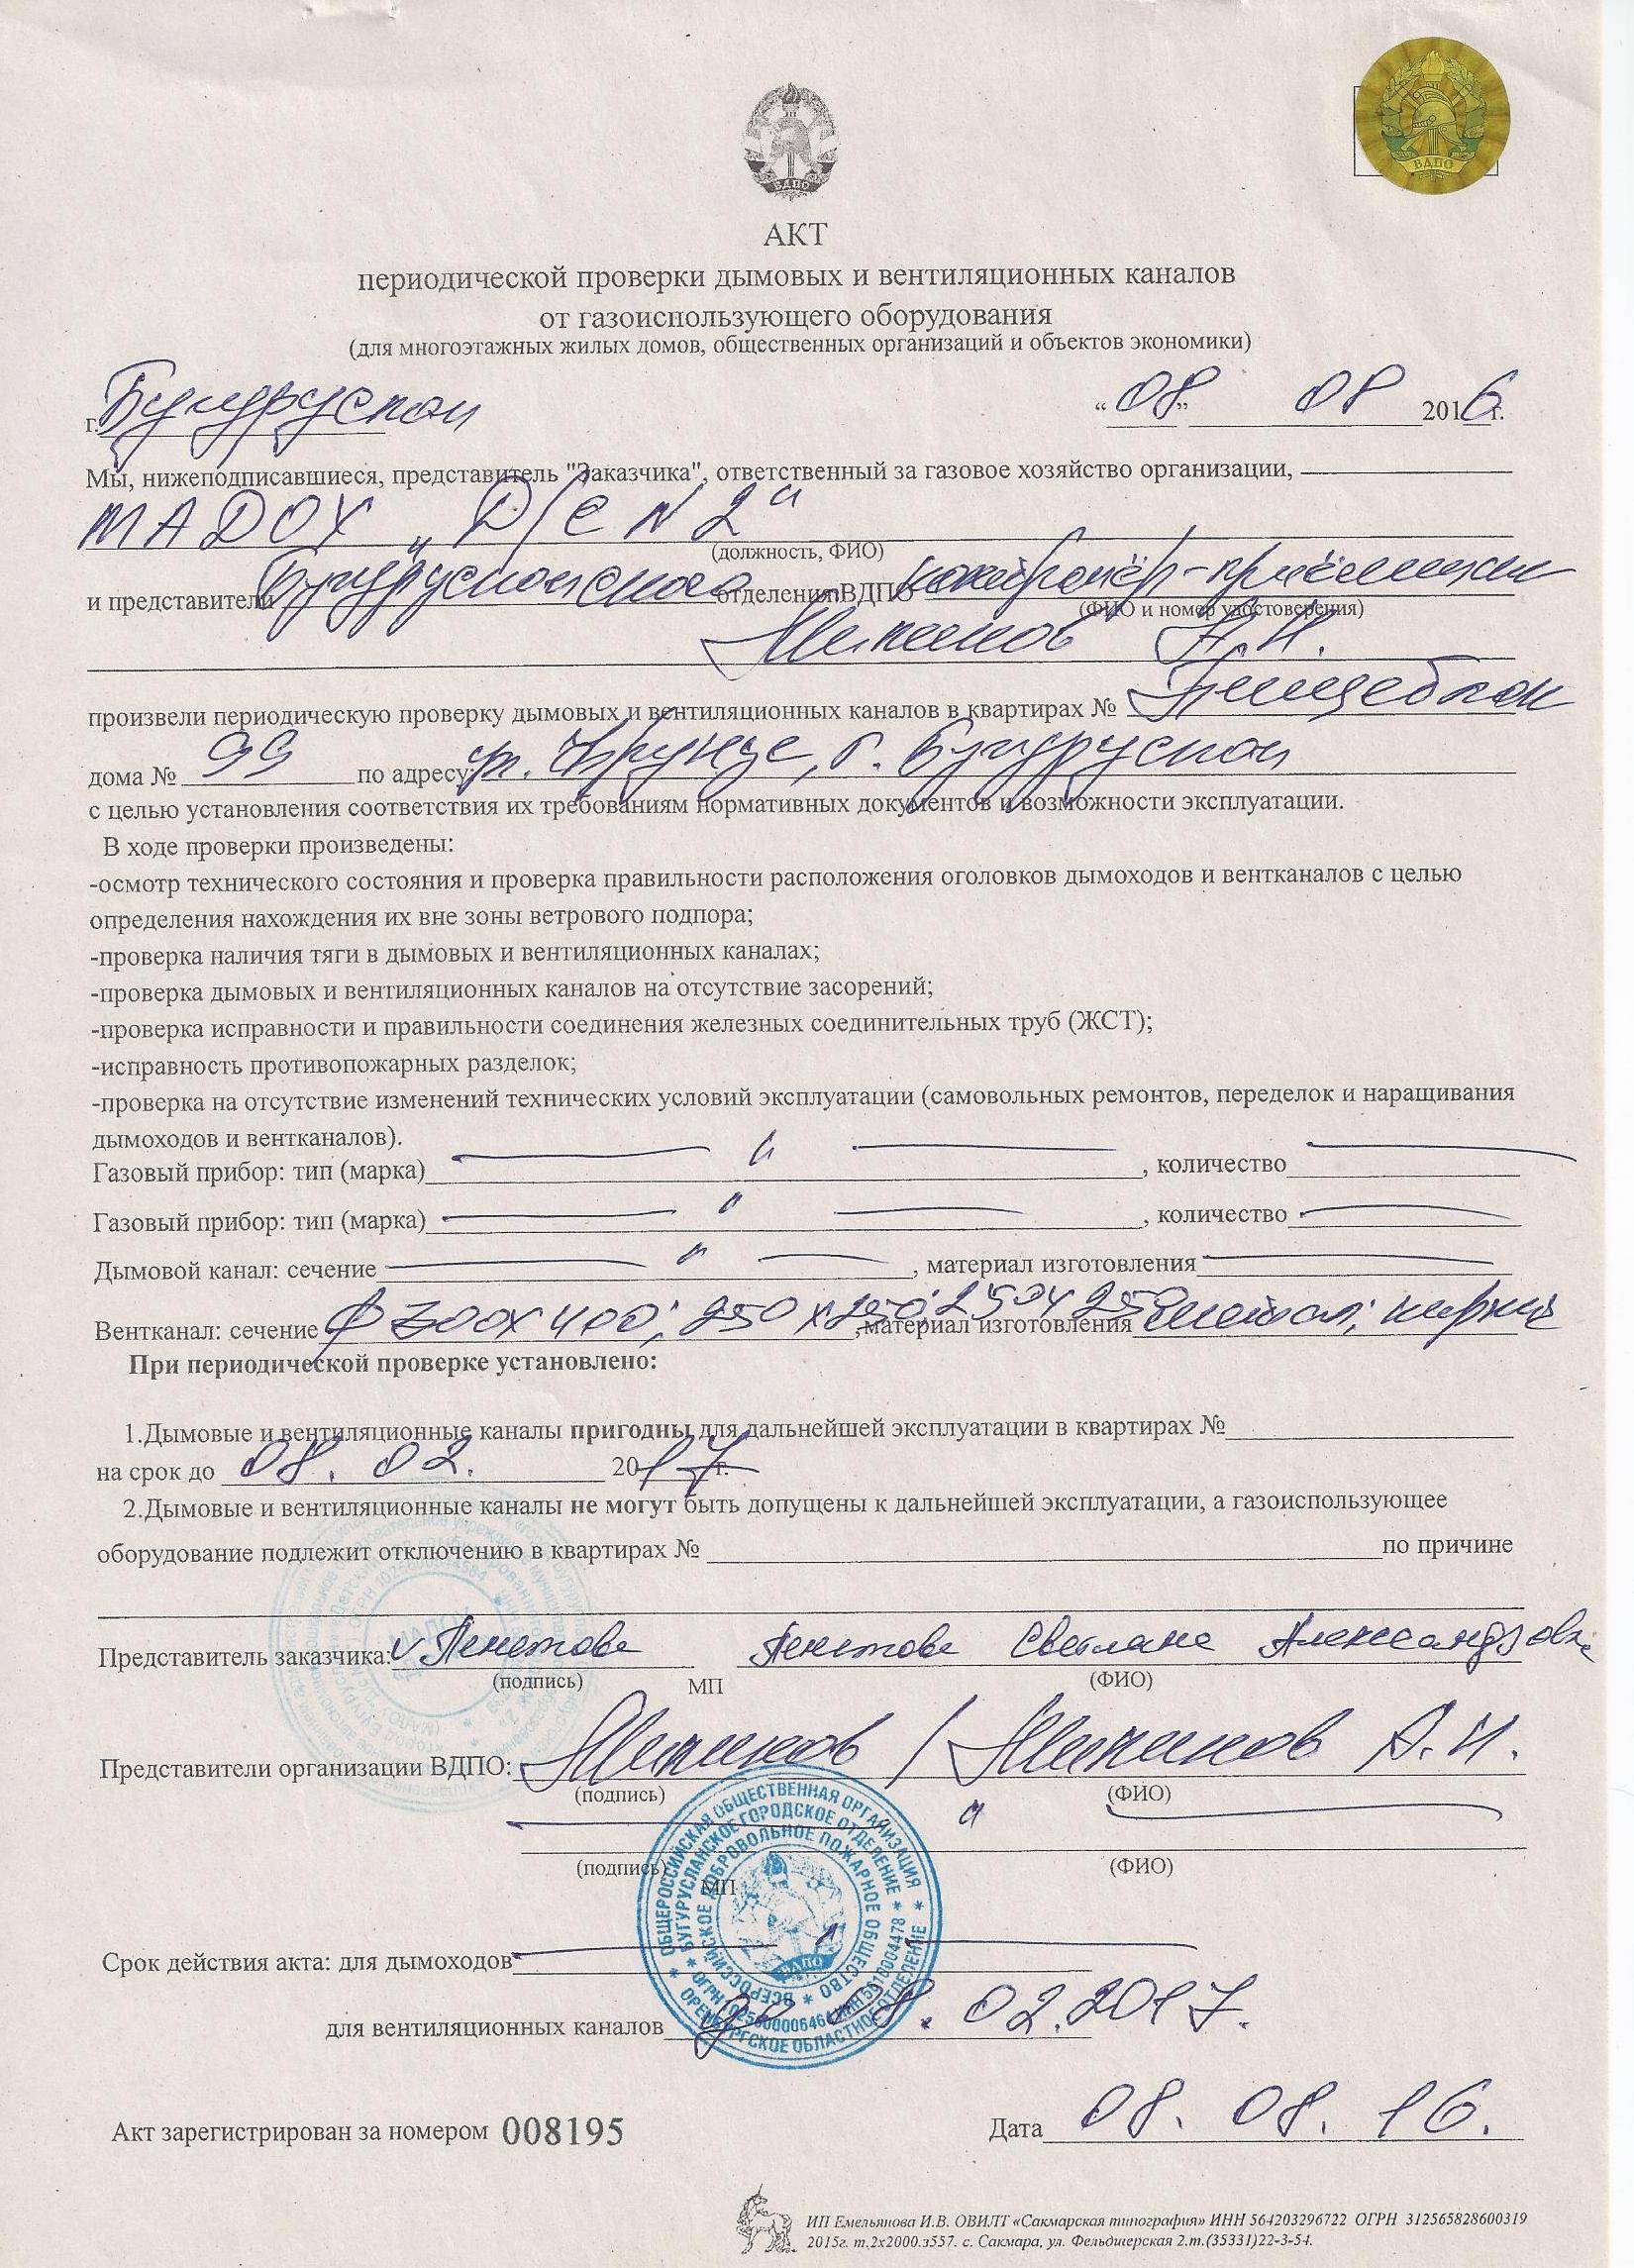 ВДПО
ВДПО
АКТ
периодической проверки дымовых и вентиляционных каналов
от газоиспользующего оборудования
(для многоэтажных жилых домов, общественных организаций и объектов экономики)
г. Бугуруслан "08" 08 2016 г.
Мы, нижеподписавшиеся, представитель "Заказчика", ответственный за газовое хозяйство организации,
МАДОУ "Д/С N 2"
(должность, ФИО)
и представители Бугурусланского отделения ВДПО контролёр-приёмщик
(ФИО и номер удостоверения)
А.И.
произвели периодическую проверку дымовых и вентиляционных каналов в квартирах № Пищеблок
дома № 99 по адресу: ул. Фрунзе, г. Бугуруслан
с целью установления соответствия их требованиям нормативных документов и возможности эксплуатации.
В ходе проверки произведены:
-осмотр технического состояния и проверка правильности расположения оголовков дымоходов и вентканалов с целью
определения нахождения их вне зоны ветрового подпора;
-проверка наличия тяги в дымовых и вентиляционных каналах;
-проверка дымовых и вентиляционных каналов на отсутствие засорений;
-проверка исправности и правильности соединения железных соединительных труб (ЖСТ);
-исправность противопожарных разделок;
-проверка на отсутствие изменений технических условий эксплуатации (самовольных ремонтов, переделок и наращивания
дымоходов и вентканалов).
Газовый прибор: тип (марка) — " — , количество —
Газовый прибор: тип (марка) — " — , количество —
Дымовой канал: сечение — " — , материал изготовления —
Вентканал: сечение ф 300х400; 250х250; 250х250 , материал изготовления металл; кирпич
При периодической проверке установлено:
1.Дымовые и вентиляционные каналы пригодны для дальнейшей эксплуатации в квартирах №
на срок до 08. 02. 2017 г.
2.Дымовые и вентиляционные каналы не могут быть допущены к дальнейшей эксплуатации, а газоиспользующее
оборудование подлежит отключению в квартирах № по причине
Представитель заказчика: Светлана Александровна
(подпись) МП (ФИО)
Представители организации ВДПО: / А.И.
(подпись) (ФИО)
— " —
(подпись) (ФИО)
МП
ОБЩЕРОССИЙСКАЯ ОБЩЕСТВЕННАЯ ОРГАНИЗАЦИЯ
БУГУРУСЛАНСКОЕ ГОРОДСКОЕ ОТДЕЛЕНИЕ
ВСЕРОССИЙСКОЕ ДОБРОВОЛЬНОЕ ПОЖАРНОЕ ОБЩЕСТВО
ОРЕНБУРГСКОЕ ОБЛАСТНОЕ ОТДЕЛЕНИЕ
ВДПО
Срок действия акта: для дымоходов — " —
для вентиляционных каналов до 08. 02.2017.
Акт зарегистрирован за номером 008195 Дата 08. 08. 16.
ИП Емельянова И.В. ОВИЛТ «Сакмарская типография» ИНН 564203296722 ОГРН 312565828600319
2015г. т.2х2000.з557. с. Сакмара, ул. Фельдшерская 2.т.(35331)22-3-54.